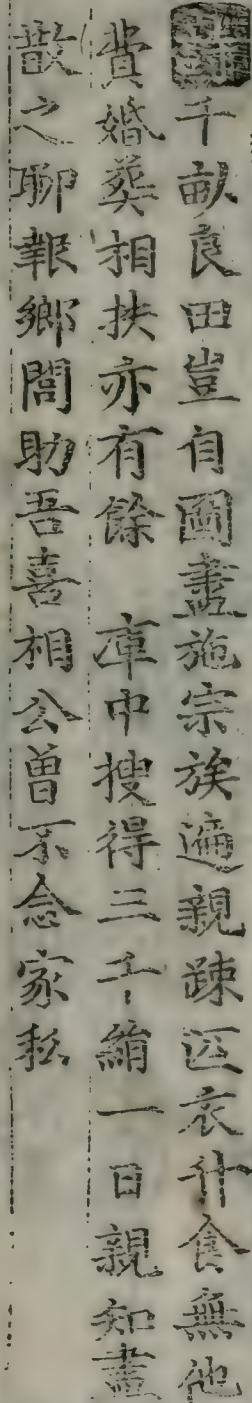 千畒良田豈自圖盡施宗族遍親踈匹衣升食無他
費婚葬相扶亦有餘　庫中搜得三千縜一日親知盡
散之聊報鄉閭助吾喜相公曾不念家私